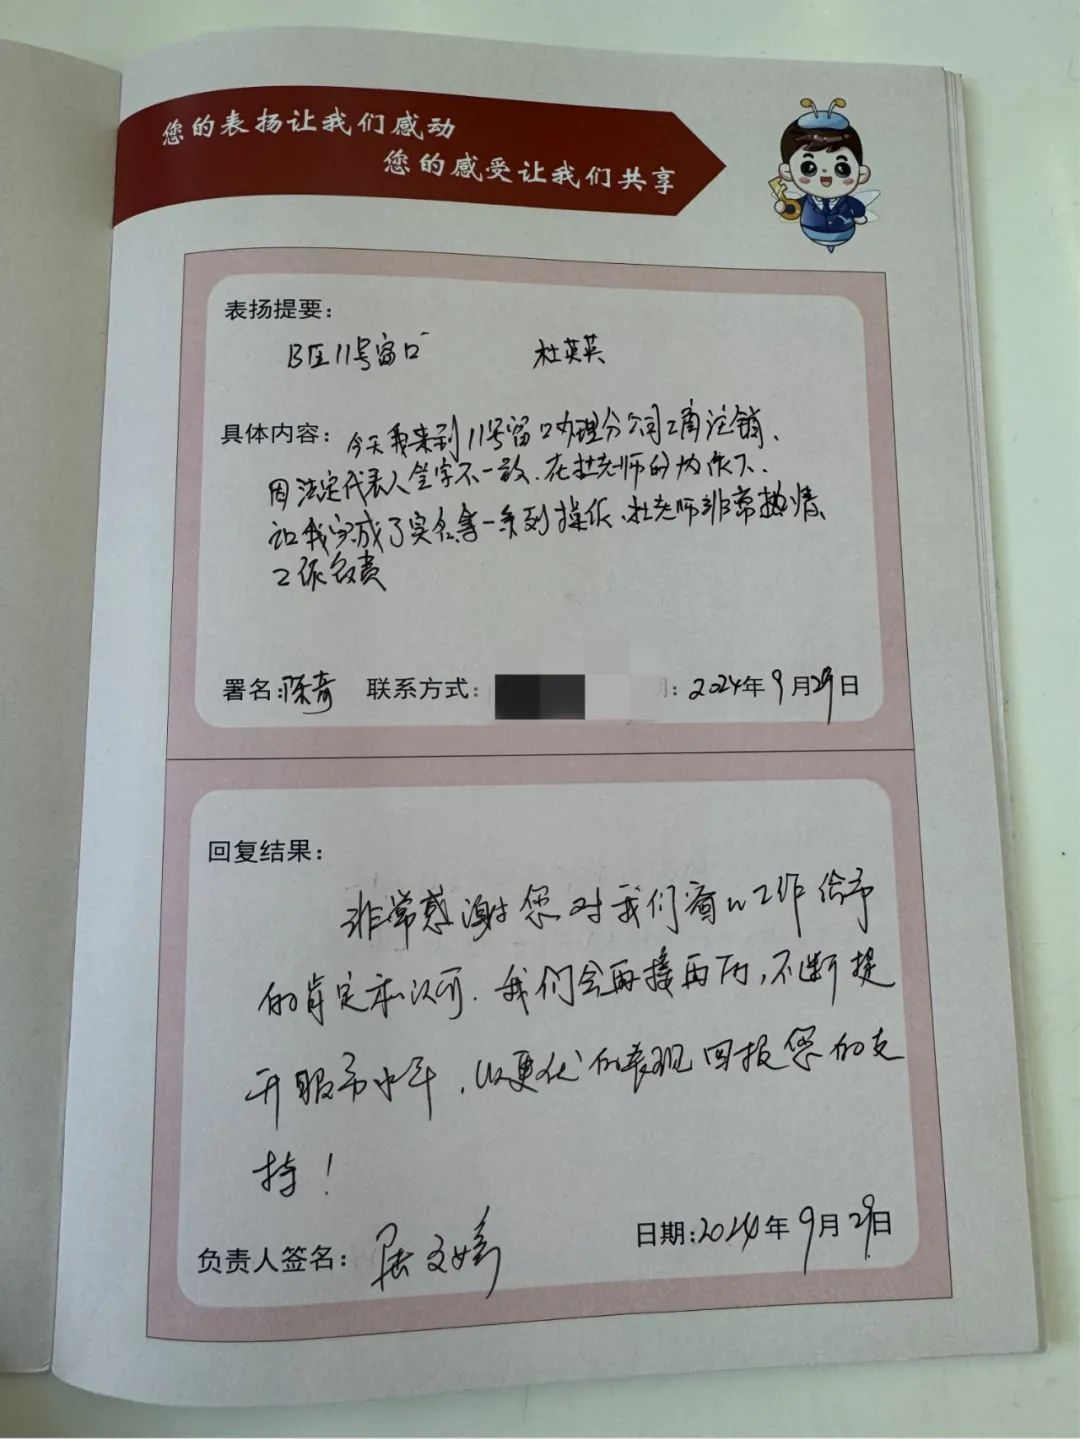 您的表扬让我们感动
您的感受让我们共享
表扬提要：
B区11号窗口 杜英英
具体内容：今天我来到11号窗口办理分公司工商注销、
因法定代表人签字不一致.在杜老师的协作下.
让我完成了实名等一系列操作.杜老师非常热情、
工作负责
署名：陈奇 联系方式： 期：2024年9月29日
回复结果：
非常感谢您对我们窗口工作给予
的肯定和认可.我们会再接再厉，不断提
升服务水平，以更优的表现回报您的支
持！
负责人签名： 文婷
日期：2024年9月29日